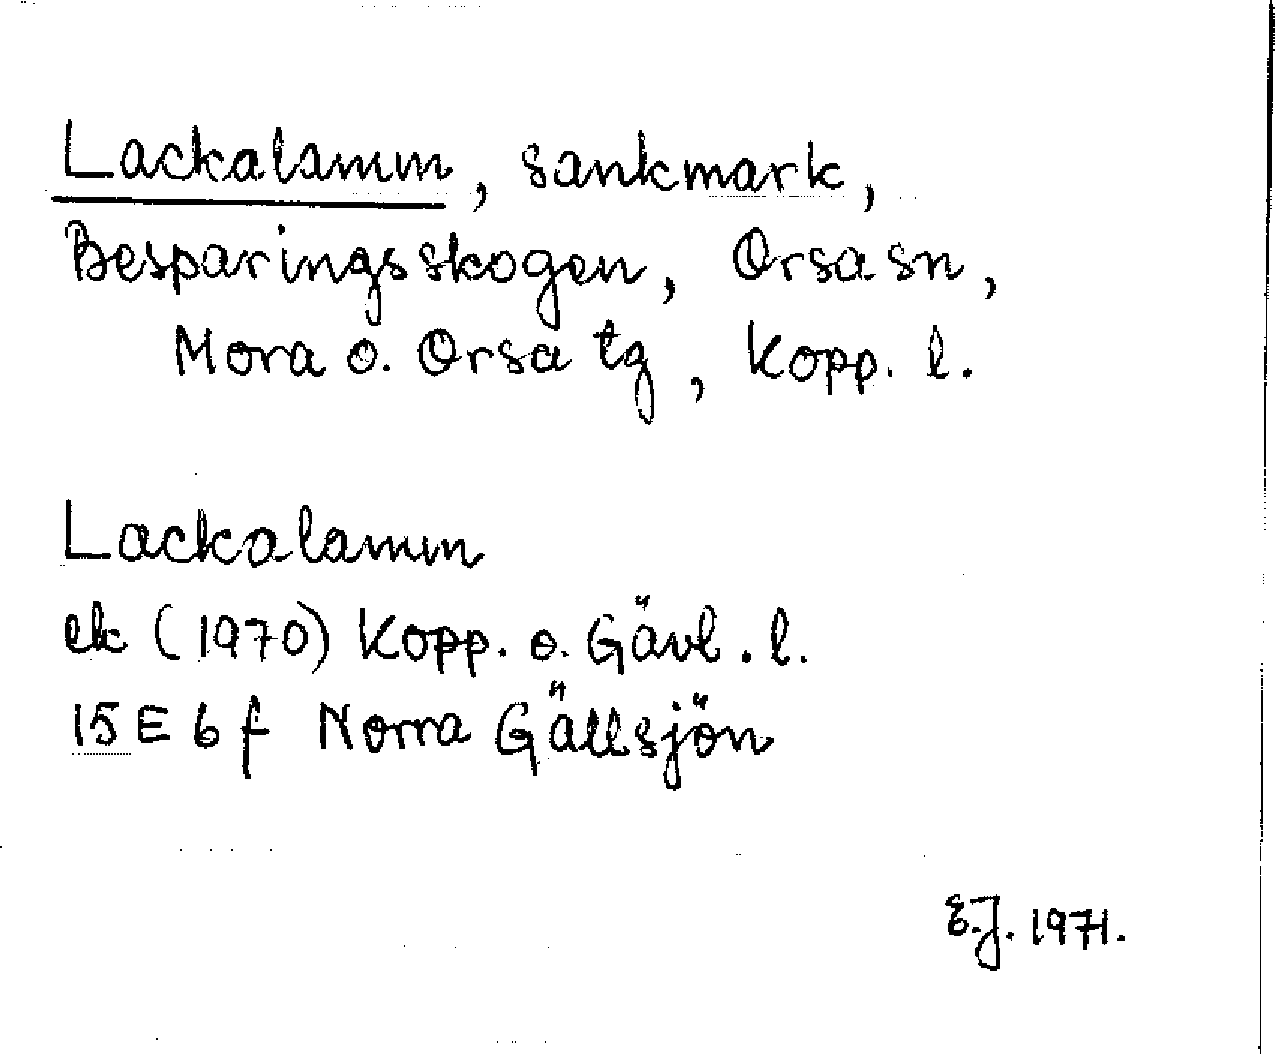 Lackalamm, sankmark,
Besparingsskogen, Orsa sn,
Mora o. Orsa tg, Kopp. l.
Lackalamm
ek (1970) Kopp. o. Gävl. l.
15 E 6 f Norra Gällsjön
E.J. 1971.